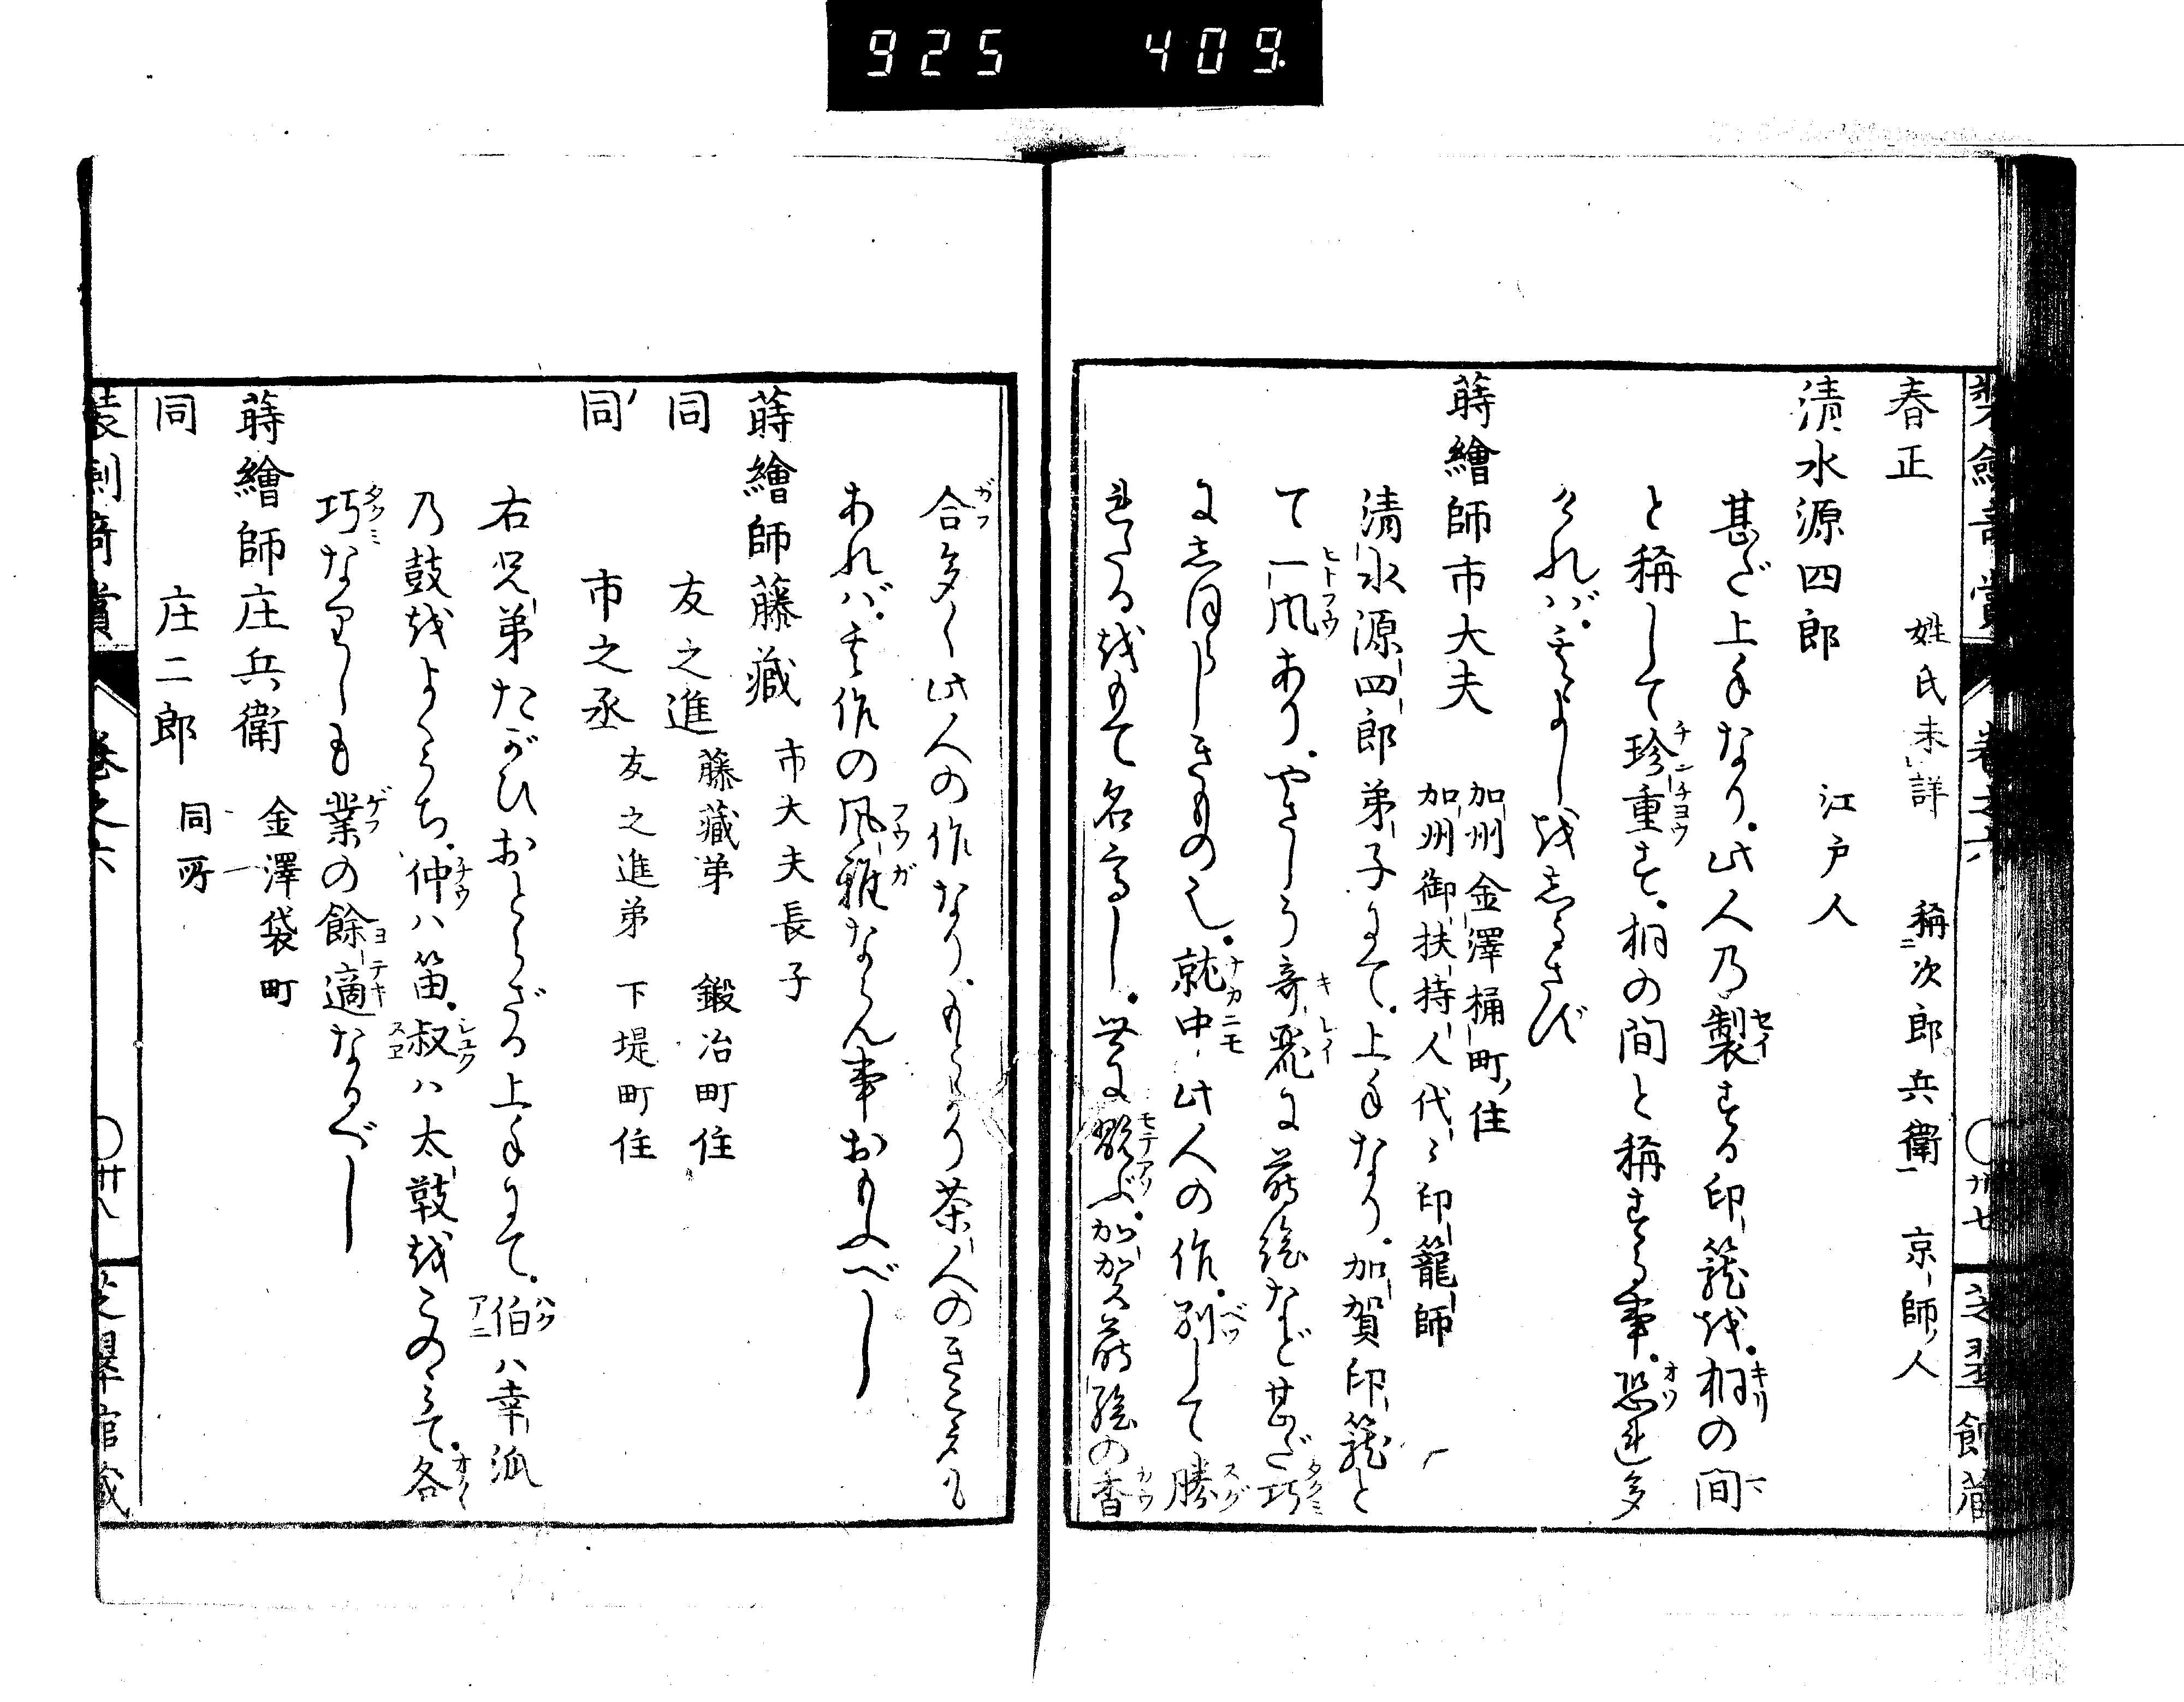 925 409
春正 姓氏未詳 稱次郎兵衛 京師ノ人
清水源四郎 江戸人
甚ダ上手なり。此人乃製する印籠越。桐の間
と稱して珍重す。桐の間と稱する事。恐れ多
けれバ。其よし越しるさず
蒔繪師市大夫 加州金澤桶町住
加州御扶持人代々印籠師
清水源四郎弟子にて。上手なり。加賀印籠と
て一風あり。やさしう奇麗に蒔絵など甚だ巧
にしほらしきもの也。就中此人の作。別して勝
れたる越もて名高し。世に翫ぶ。加賀蒔絵の香
合多く此人の作なり。もとより茶人のきこえも
あれバ。其作の風雅ならん事おもふべし
蒔繪師藤藏 市大夫長子
同 友之進 藤藏弟 鍛冶町住
同 市之丞 友之進弟 下堤町住
右兄弟たがひおとらざる上手にて。伯ハ幸流
乃鼓越よくうち。仲ハ笛。叔ハ太鼓越このみて。各
巧なりしも業の餘適なるべし
蒔繪師庄兵衛 金澤袋町
同 庄二郎 同所
装劍奇賞 巻之六 〇卅八 芝翠館藏